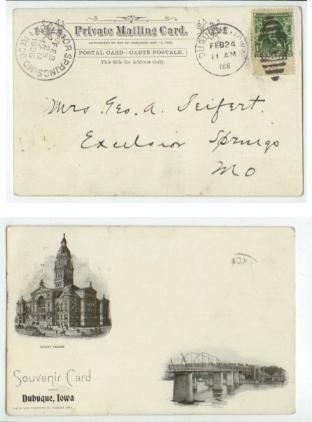 Private Mailing Card.
AUTHORIZED BY ACT OF CONGRESS MAY 19, 1898.
POSTAL CARD - CARTE POSTALE.
This Side for Address Only.
DUBUQUE, IOWA
FEB 24
11 AM
Mrs. Geo. A. Seifert.
Excelsior Springs
Mo
COURT HOUSE.
Souvenir Card
Dubuque, Iowa